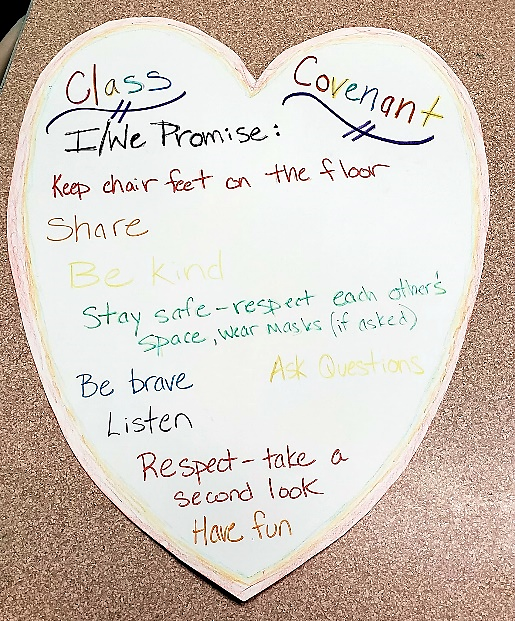 Class Covenant
I/We Promise:
Keep chair feet on the floor
Share
Be kind
Stay safe - respect each other's
space, wear masks (if asked)
Be brave
Ask Questions
Listen
Respect - take a
second look
Have fun